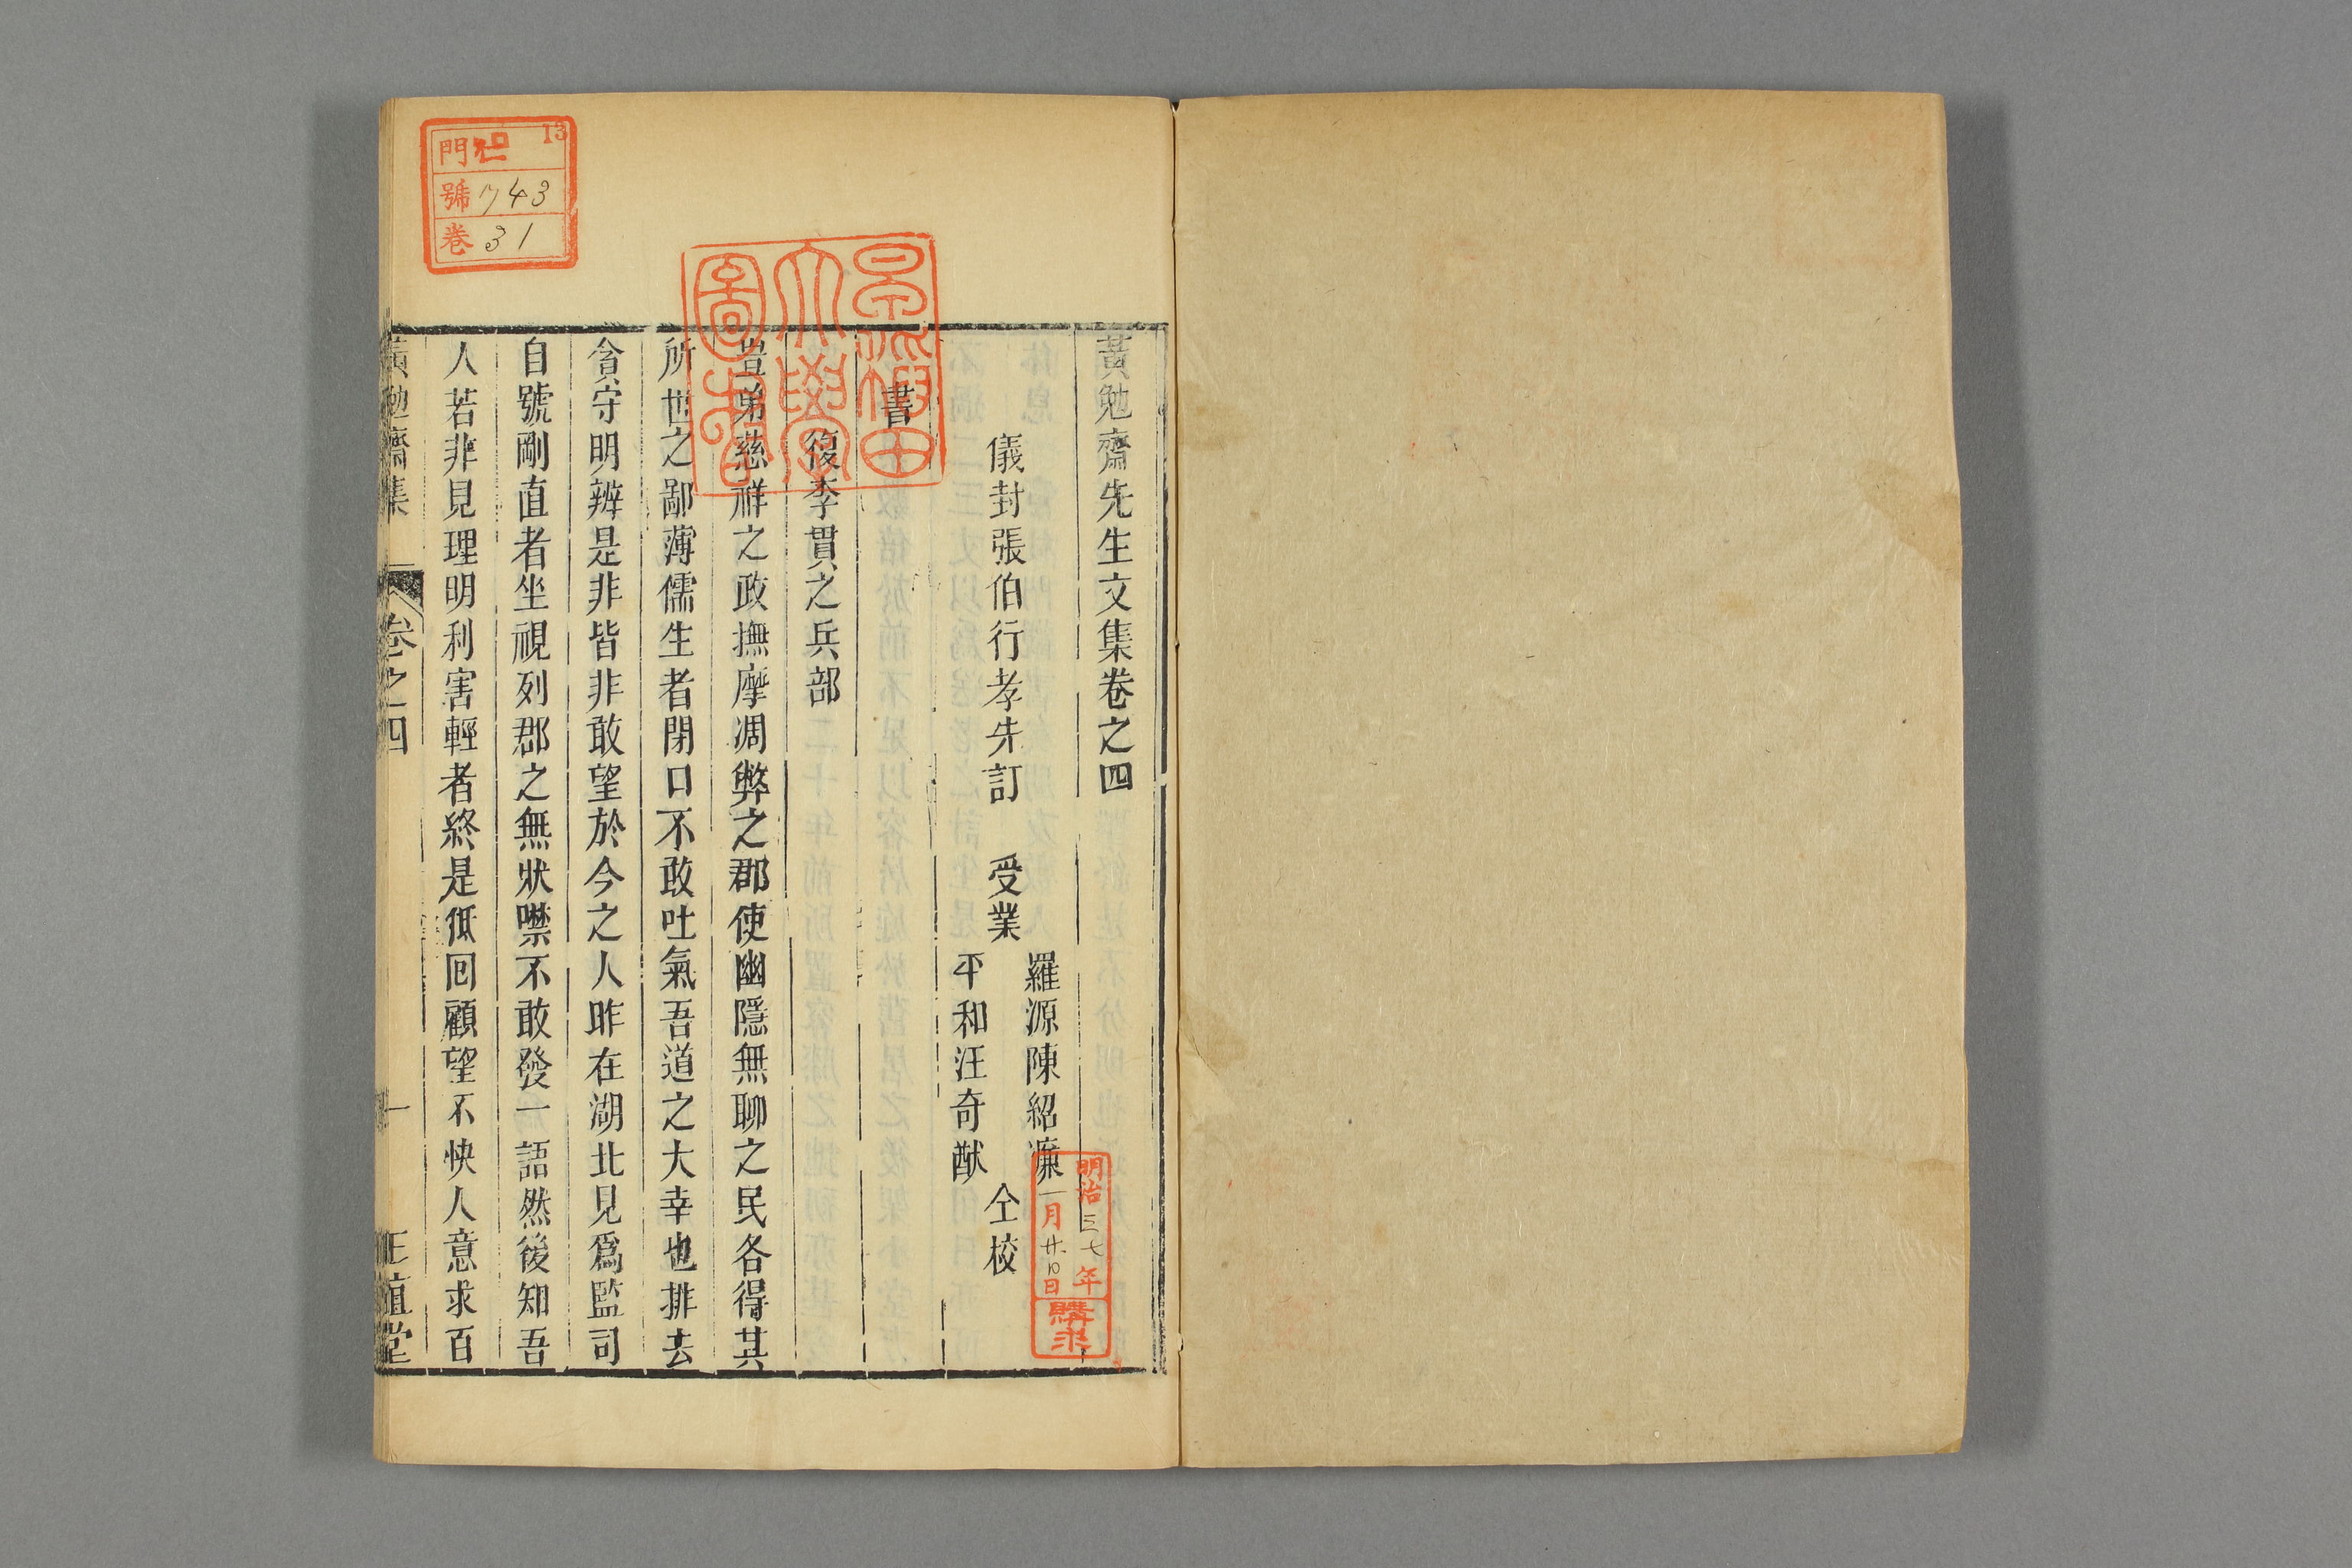 黃勉齋先生文集卷之四
儀封張伯行孝先訂 受業
羅源陳紹濂
平和汪奇猷
仝校
書
復李貫之兵部
豈弟慈祥之政撫摩凋弊之郡使幽隱無聊之民各得其
所世之鄙薄儒生者閉口不敢吐氣吾道之大幸也排去
貪守明辨是非皆非敢望於今之人昨在湖北見爲監司
自號剛直者坐視列郡之無狀噤不敢發一語然後知吾
人若非見理明利害輕者終是低回顧望不快人意求百
黃勉齋集 卷之四 一 正誼堂
13
門
號 743
卷 31
早稲田
大學
圖書
明治三七年
一月廿日
購求